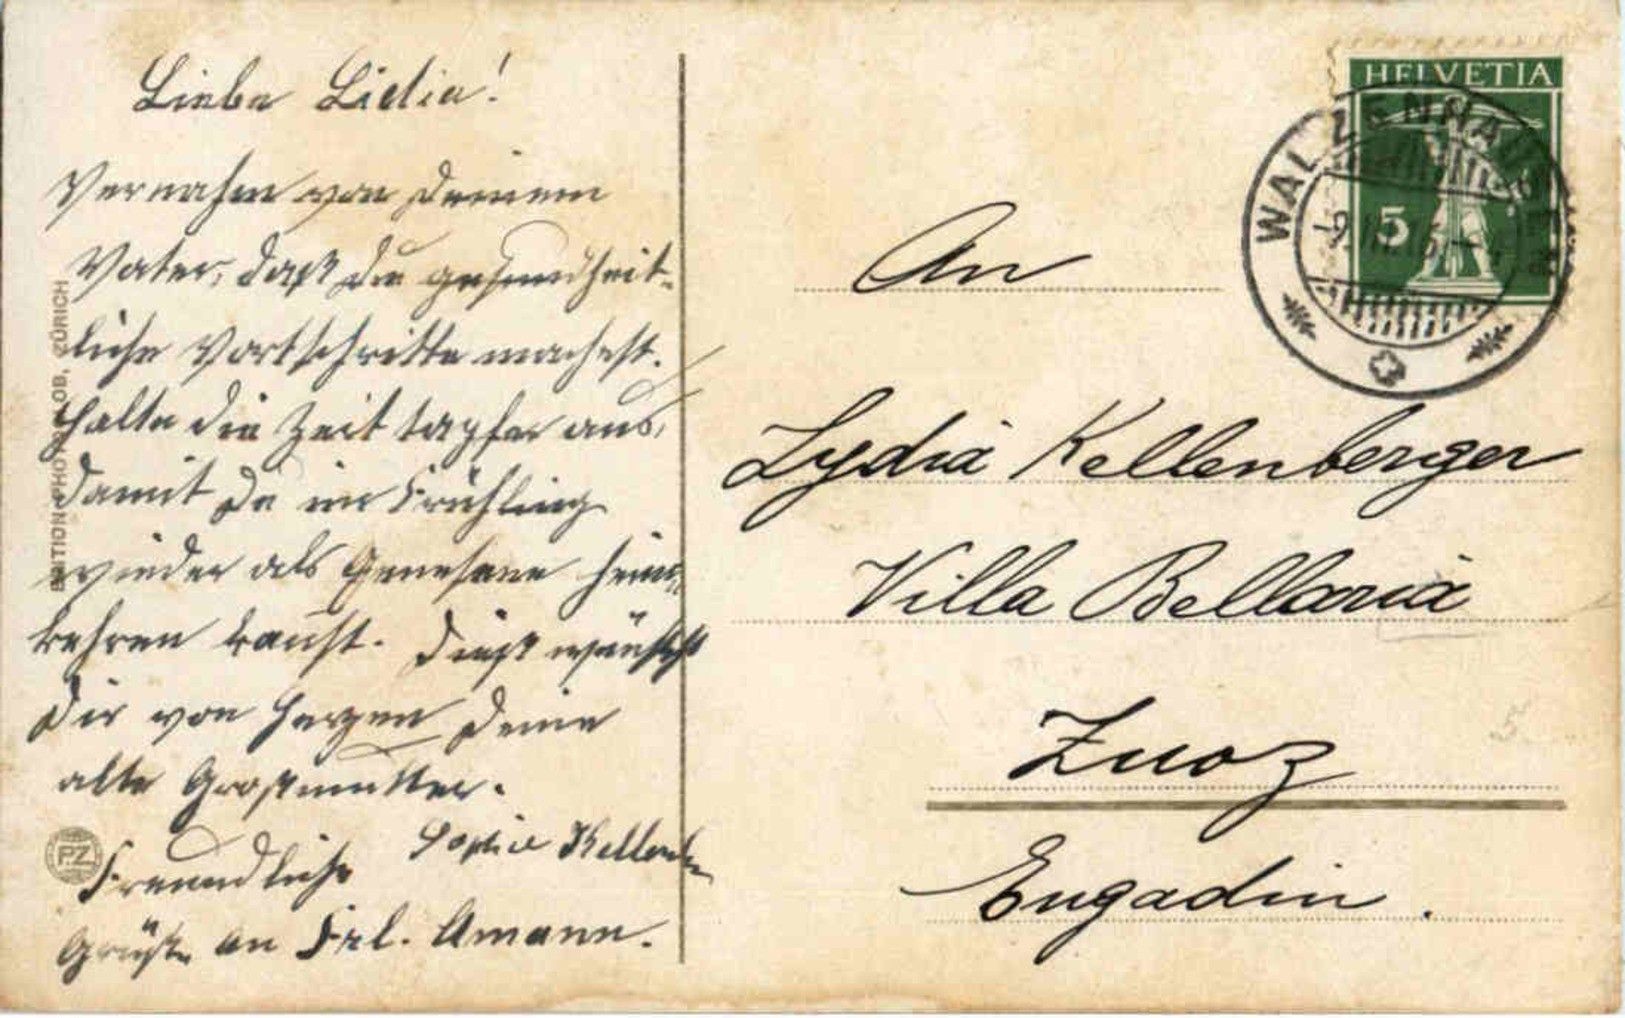 Liebe Lidia!
Vernahm von Deinem
Vater, daß Du gesundheit-
liche Vortschritte machest.
Halte die Zeit tapfer aus,
damit Du im Frühling
wieder als Genesene heim-
kehren kanst. Dieß wünscht
Dir von Herzen Deine
alte Großmutter.
Sophie
Freundliche
Grüße an Frl. Amann.
EDITION PHOTOGLOB, ZÜRICH
PZ
HELVETIA
5
WALZENHAUSEN
An
Lydia Kellenberger
Villa Bellaria
Zuoz
Engadin.